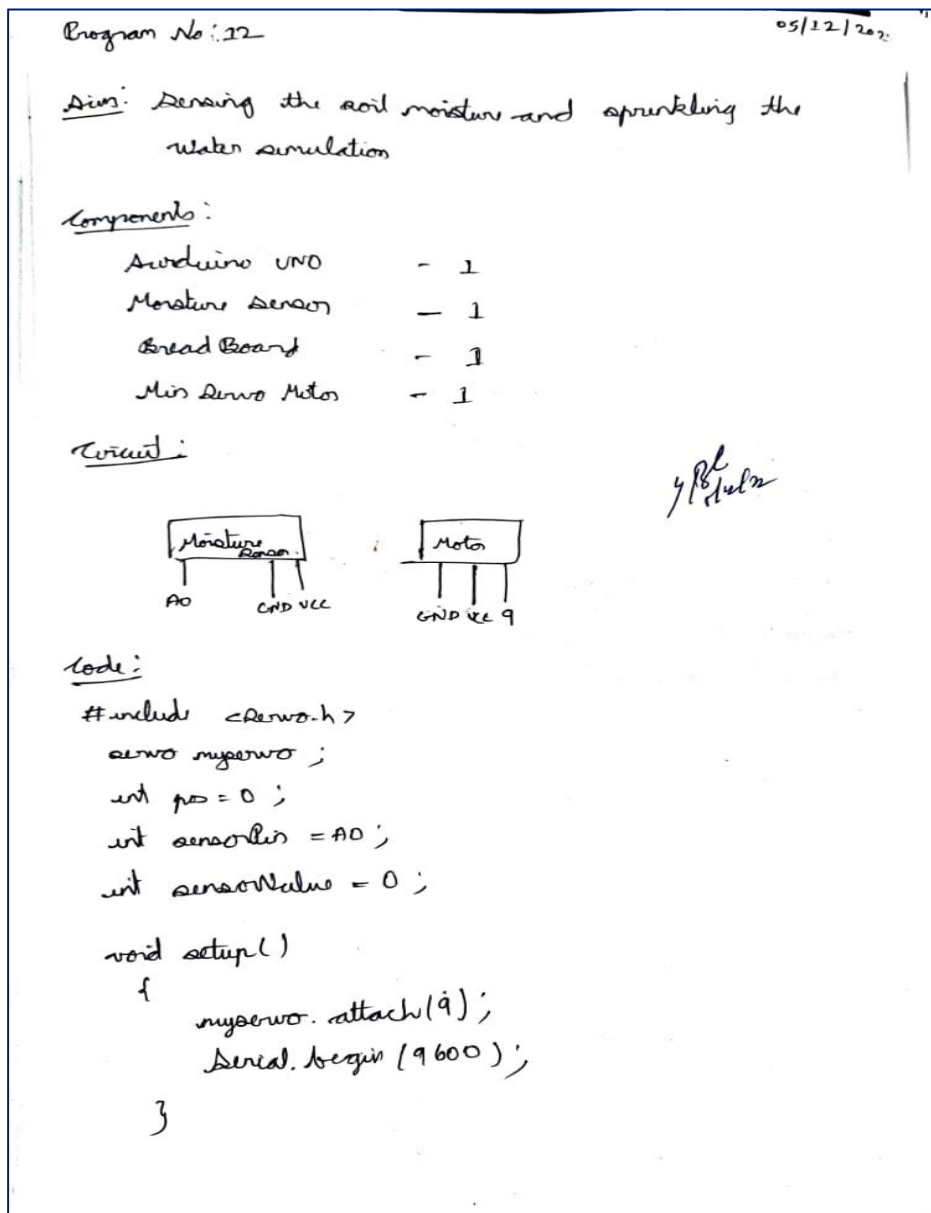 Program No: 12
05/12/202
Aim: Sensing the soil moisture and sprinkling the
water simulation
Components:
Aurduino UNO - 1
Moisture Sensor - 1
Bread Board - 1
Min Servo Motor - 1
Circuit:
Moisture Sensor
Motor
A0 GND VCC
GND VCC 9
Code:
#include <Servo.h>
servo myservo ;
int pos = 0 ;
int sensorPin = A0 ;
int sensorValue = 0 ;
void setup()
{
myservo. attach(9) ;
Serial. begin (9600) ;
}